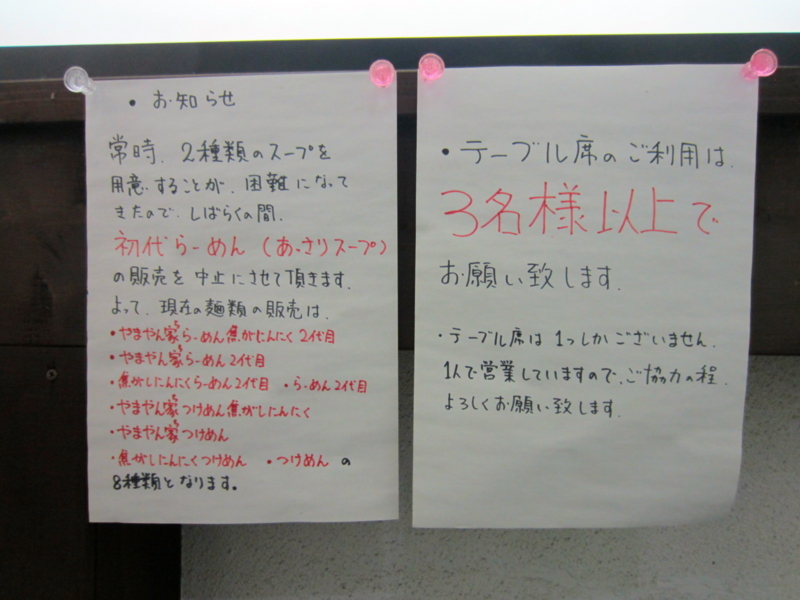 ・お知らせ
常時、2種類のスープを
用意することが、困難になって
きたので、しばらくの間、
初代らーめん(あっさりスープ)
の販売を中止にさせて頂きます。
よって、現在の麺類の販売は、
・やまやん家らーめん焦がしにんにく2代目
・やまやん家らーめん2代目
・焦がしにんにくらーめん2代目 ・らーめん2代目
・やまやん家つけめん焦がしにんにく
・やまやん家つけめん
・焦がしにんにくつけめん ・つけめん の
8種類となります。
・テーブル席のご利用は、
3名様以上で
お願い致します。
・テーブル席は1つしかございません。
1人で営業していますので、ご協力の程、
よろしくお願い致します。